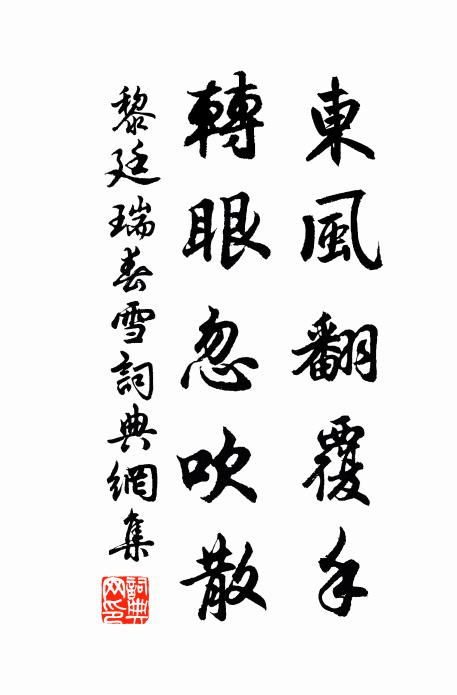 東風翻覆手
轉眼忽吹散
黎廷瑞春雪詞典網集
詞典
网印